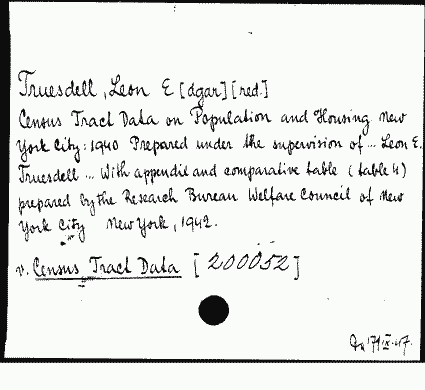 Truesdell, Leon E [dgar] [red.]
Census Tract Data on Population and Housing New
York City: 1940 Prepared under the supervision of ... Leon E.
Truesdell ... With appendil and comparative table (table 4)
prepared by the Research Bureau Welfare Council of New
York City New York, 1942.
v. Census Tract Data [200052]